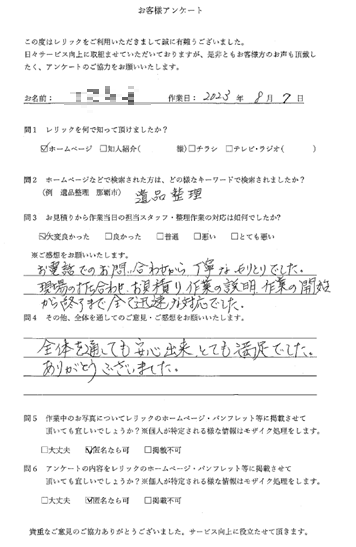 お客様アンケート
この度はレリックをご利用いただきまして誠に有難うございました。
日々サービス向上に取組ませていただいておりますが、是非ともお客様方のお声も頂戴し
たく、アンケートのご協力をお願いします。
お名前： 作業日： 2023 年 8 月 7 日
問1 レリックを何で知って頂けましたか？
☑ホームページ □知人紹介( 様)□チラシ □テレビ・ラジオ( )
問2 ホームページなどで検索された方は、どの様なキーワードで検索されましたか？
(例 遺品整理 那覇市) 遺品整理
問3 お見積りから作業当日の担当スタッフ・整理作業の対応は如何でしたか？
☑大変良かった □良かった □普通 □悪い □とても悪い
※ご感想をお願いします。
お電話でのお問い合わせから、丁寧なやりとりでした。
現場の打ち合わせ、お見積り、作業の説明、作業の開始
から終了まで全て迅速な対応でした。
問4 その他、全体を通してのご意見・ご感想をお願いします。
全体を通しても安心出来、とても満足でした。
ありがとうございました。
問5 作業中のお写真についてレリックのホームページ・パンフレット等に掲載させて
頂いても宜しいでしょうか？※個人が特定される様な情報はモザイク処理をします。
□大丈夫 ☑匿名なら可 □掲載不可
問6 アンケートの内容をレリックのホームページ・パンフレット等に掲載させて
頂いても宜しいでしょうか？※個人が特定される様な情報はモザイク処理をします。
□大丈夫 ☑匿名なら可 □掲載不可
貴重なご意見のご協力ありがとうございました。サービス向上に役立たせて頂きます。